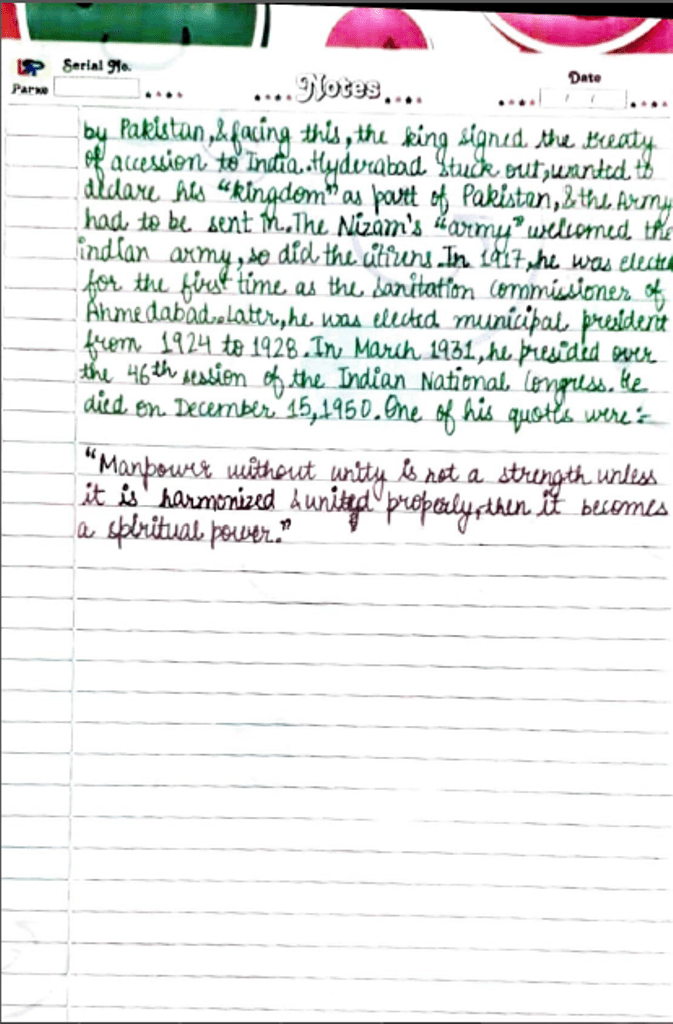 Serial No.
Parxo
Notes
Date
/ /
by Pakistan, & facing this, the king signed the treaty
of accession to India. Hyderabad stuck out, wanted to
declare his "kingdom" as part of Pakistan, & the Army
had to be sent in. The Nizam's "army" welcomed the
indian army, so did the citizens. In 1917, he was elected
for the first time as the sanitation commissioner of
Ahmedabad. Later, he was elected municipal president
from 1924 to 1928. In March 1931, he presided over
the 46th session of the Indian National Congress. He
died on December 15, 1950. One of his quotes were :-
"Manpower without unity is not a strength unless
it is harmonized & united properly, then it becomes
a spiritual power."